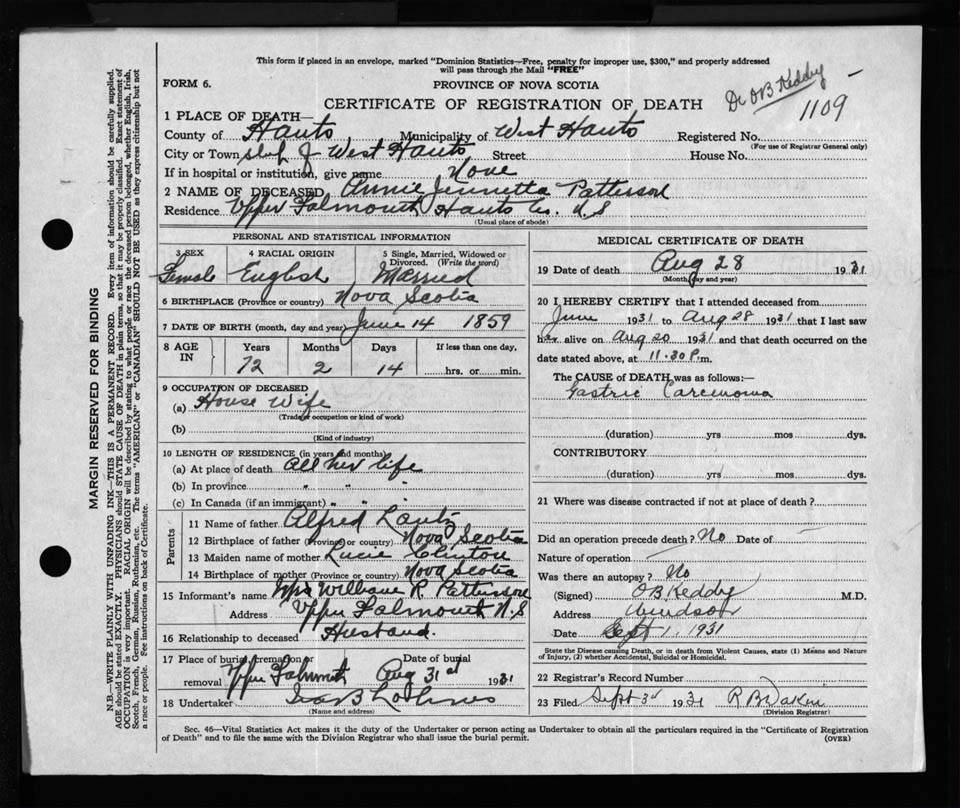 This form if placed in an envelope, marked "Dominion Statistics—Free, penalty for improper use, $300," and properly addressed
will pass through the Mail "FREE"
FORM 6.
PROVINCE OF NOVA SCOTIA
CERTIFICATE OF REGISTRATION OF DEATH
Dr O B Keddy
1109
1 PLACE OF DEATH—
County of Hants Municipality of West Hants Registered No.
(For use of Registrar General only)
City or Town of West Hants Street House No.
If in hospital or institution, give name None
2 NAME OF DECEASED Annie Jennetta Patterson
Residence Upper Falmouth Hants Co. N.S
(Usual place of abode)
PERSONAL AND STATISTICAL INFORMATION
3 SEX 4 RACIAL ORIGIN 5 Single, Married, Widowed or Divorced. (Write the word)
Female English Married
6 BIRTHPLACE (Province or country) Nova Scotia
7 DATE OF BIRTH (month, day and year) June 14 1859
8 AGE IN Years Months Days If less than one day,
72 2 14 hrs. or min.
9 OCCUPATION OF DECEASED
(a) House Wife
(Trade, occupation or kind of work)
(b)
(Kind of industry)
10 LENGTH OF RESIDENCE (in years and months)
(a) At place of death all her life
(b) In province " " "
(c) In Canada (if an immigrant) " " "
Parents
11 Name of father Alfred Lantz
12 Birthplace of father (Province or country) Nova Scotia
13 Maiden name of mother Lucie Clinton
14 Birthplace of mother (Province or country) Nova Scotia
15 Informant's name William R Patterson
Address Upper Falmouth N.S
16 Relationship to deceased Husband.
17 Place of burial, cremation or removal Upper Falmouth Date of burial Aug 31st 1931
18 Undertaker
(Name and address)
MEDICAL CERTIFICATE OF DEATH
19 Date of death Aug 28 1931
(Month, day and year)
20 I HEREBY CERTIFY that I attended deceased from
June 1931 to Aug 28 1931 that I last saw
her alive on Aug 20 1931 and that death occurred on the
date stated above, at 11.30 P.m.
The CAUSE of DEATH was as follows:—
Gastric Carcinoma
(duration) yrs mos dys.
CONTRIBUTORY
(duration) yrs mos dys.
21 Where was disease contracted if not at place of death?
Did an operation precede death? No Date of
Nature of operation
Was there an autopsy? No
(Signed) O B Keddy M.D.
Address Windsor
Date Sept 1, 1931
State the Disease causing Death, or in death from Violent Causes, state (1) Means and Nature
of Injury, (2) whether Accidental, Suicidal or Homicidal.
22 Registrar's Record Number
23 Filed Sept 3rd 1931
(Division Registrar)
Sec. 46—Vital Statistics Act makes it the duty of the Undertaker or person acting as Undertaker to obtain all the particulars required in the "Certificate of Registration
of Death" and to file the same with the Division Registrar who shall issue the burial permit. (OVER)
MARGIN RESERVED FOR BINDING
N.B.—WRITE PLAINLY WITH UNFADING INK—THIS IS A PERMANENT RECORD. Every item of information should be carefully supplied.
AGE should be stated EXACTLY. PHYSICIANS should STATE CAUSE OF DEATH in plain terms, so that it may be properly classified. Exact statement of
OCCUPATION is very important. RACIAL ORIGIN will be described by stating to what people or race the deceased person belonged, whether English, Irish,
Scotch, French, German, Russian, Ruthenian, etc. The terms "AMERICAN" or "CANADIAN" SHOULD NOT BE USED as they express citizenship but not
a race or people. See instructions on back of Certificate.